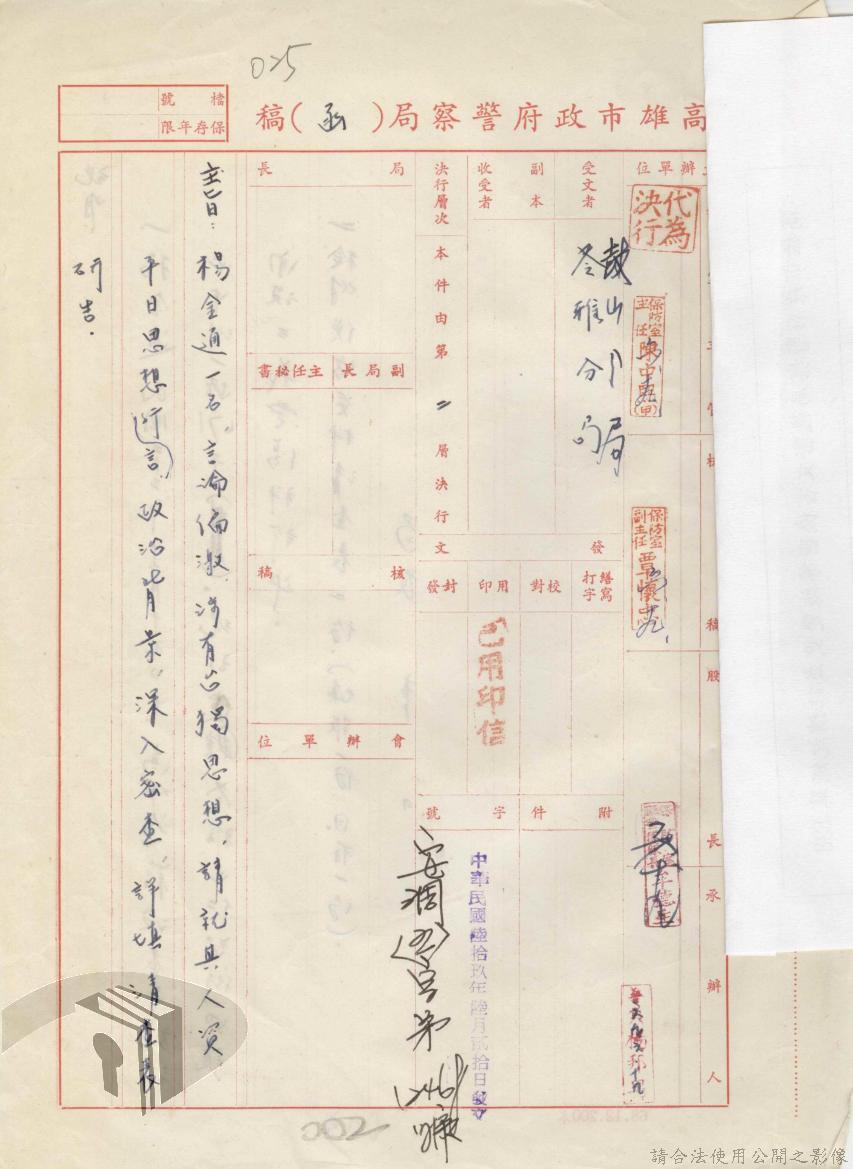 025
高雄市政府警察局(函)稿
檔號
保存年限
主辦單位
代為決行
保防室主任陳中
保防室副主任
核稿
股長
承辦人
受文者
鼓山分局
苓雅分局
副本收受者
決行層次
本件由第二層決行
發文
繕寫打字
校對
用印
封發
已用印信
附件
字號
中華民國陸拾玖年陸月貳拾日發文
安調(五)字第
號
局長
副局長
主任秘書
核稿
會辦單位
主旨:楊金通一名,言論偏激,涉有台獨思想,請就其人資、
平日思想(行言)、政治背景,深入密查,詳填清查表
研吉.
請合法使用公開之影像